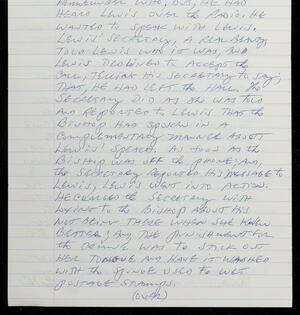 REMEMBER WHO, BUT, HE HAD
HEARD LEWIS OVER THE RADIO. HE
WANTED TO SPEAK WITH LEWIS.
LEWIS' SECRETARY, A REAL
TOLD LEWIS WHO IT WAS, AND
LEWIS DECLINED TO ACCEPT THE
CALL, TELLING HIS SECRETARY TO SAY,
THAT, HE HAD LEFT THE HALL. THE
SECRETARY DID AS SHE WAS TOLD
AND REPORTED TO LEWIS THAT THE
BISHOP HAD SPOKEN IN A
COMPLIMENTARY MANNER ABOUT
LEWIS' SPEECH. AS SOON AS THE
BISHOP WAS OFF THE PHONE, AND,
THE SECRETARY REPORTED HIS MESSAGE TO
LEWIS, LEWIS WENT INTO ACTION.
HE CHARGED THE SECRETARY WITH
LYING TO THE BISHOP ABOUT HIS
NOT BEING THERE WHEN SHE KNEW
BETTER; AND THE PUNISHMENT FOR
THE CRIME WAS TO STICK OUT
HER TONGUE AND HAVE IT WASHED
WITH THE SPONGE USED TO WET
POSTAGE STAMPS.
(OVER)